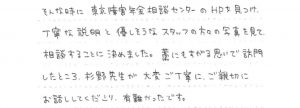 そんな時に東京障害年金相談センターのHPを見つけ、
丁寧な説明と優しそうなスタッフの方々の写真を見て、
相談することに決めました。藁にもすがる思いで訪問
したところ、杉野先生が大変ご丁寧に、ご親切に
お話ししてくださり、有難かったです。